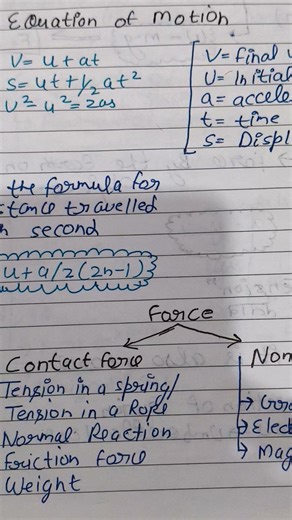 Equation of Motion
V = u + at
S = ut + 1/2 at²
v² - u² = 2as
V = final
U = Initial
a =
t = time
S =
the formula for
travelled
second
u + a/2 (2n-1)
Force
Contact force
Tension in a spring/
Tension in a Rope
Normal Reaction
Friction force
Weight